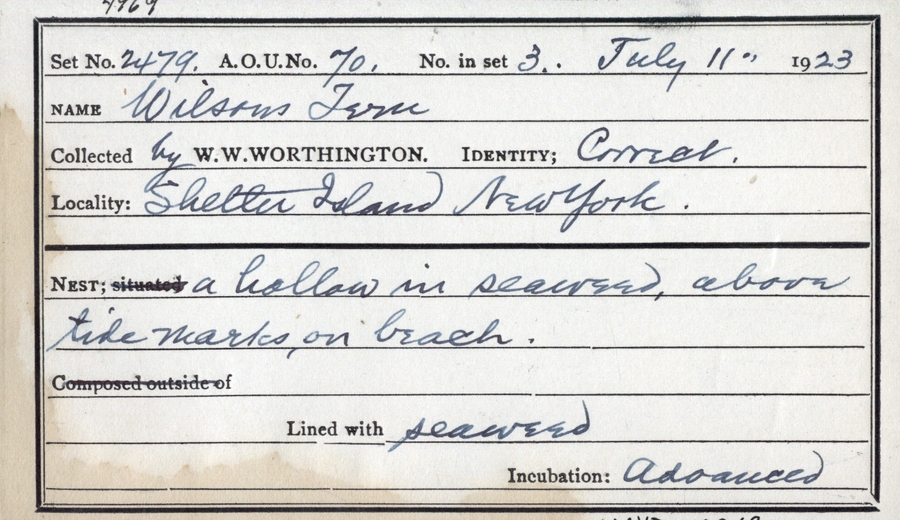 4969
Set No. 2479. A.O.U.No. 70. No. in set 3.. July 11" 1923
NAME Wilsons Tern
Collected by W.W.WORTHINGTON. IDENTITY; Correct.
Locality: Shelter Island New York.
NEST; situated a hollow in seaweed, above
tide marks, on beach.
Composed outside of
Lined with seaweed
Incubation: Advanced